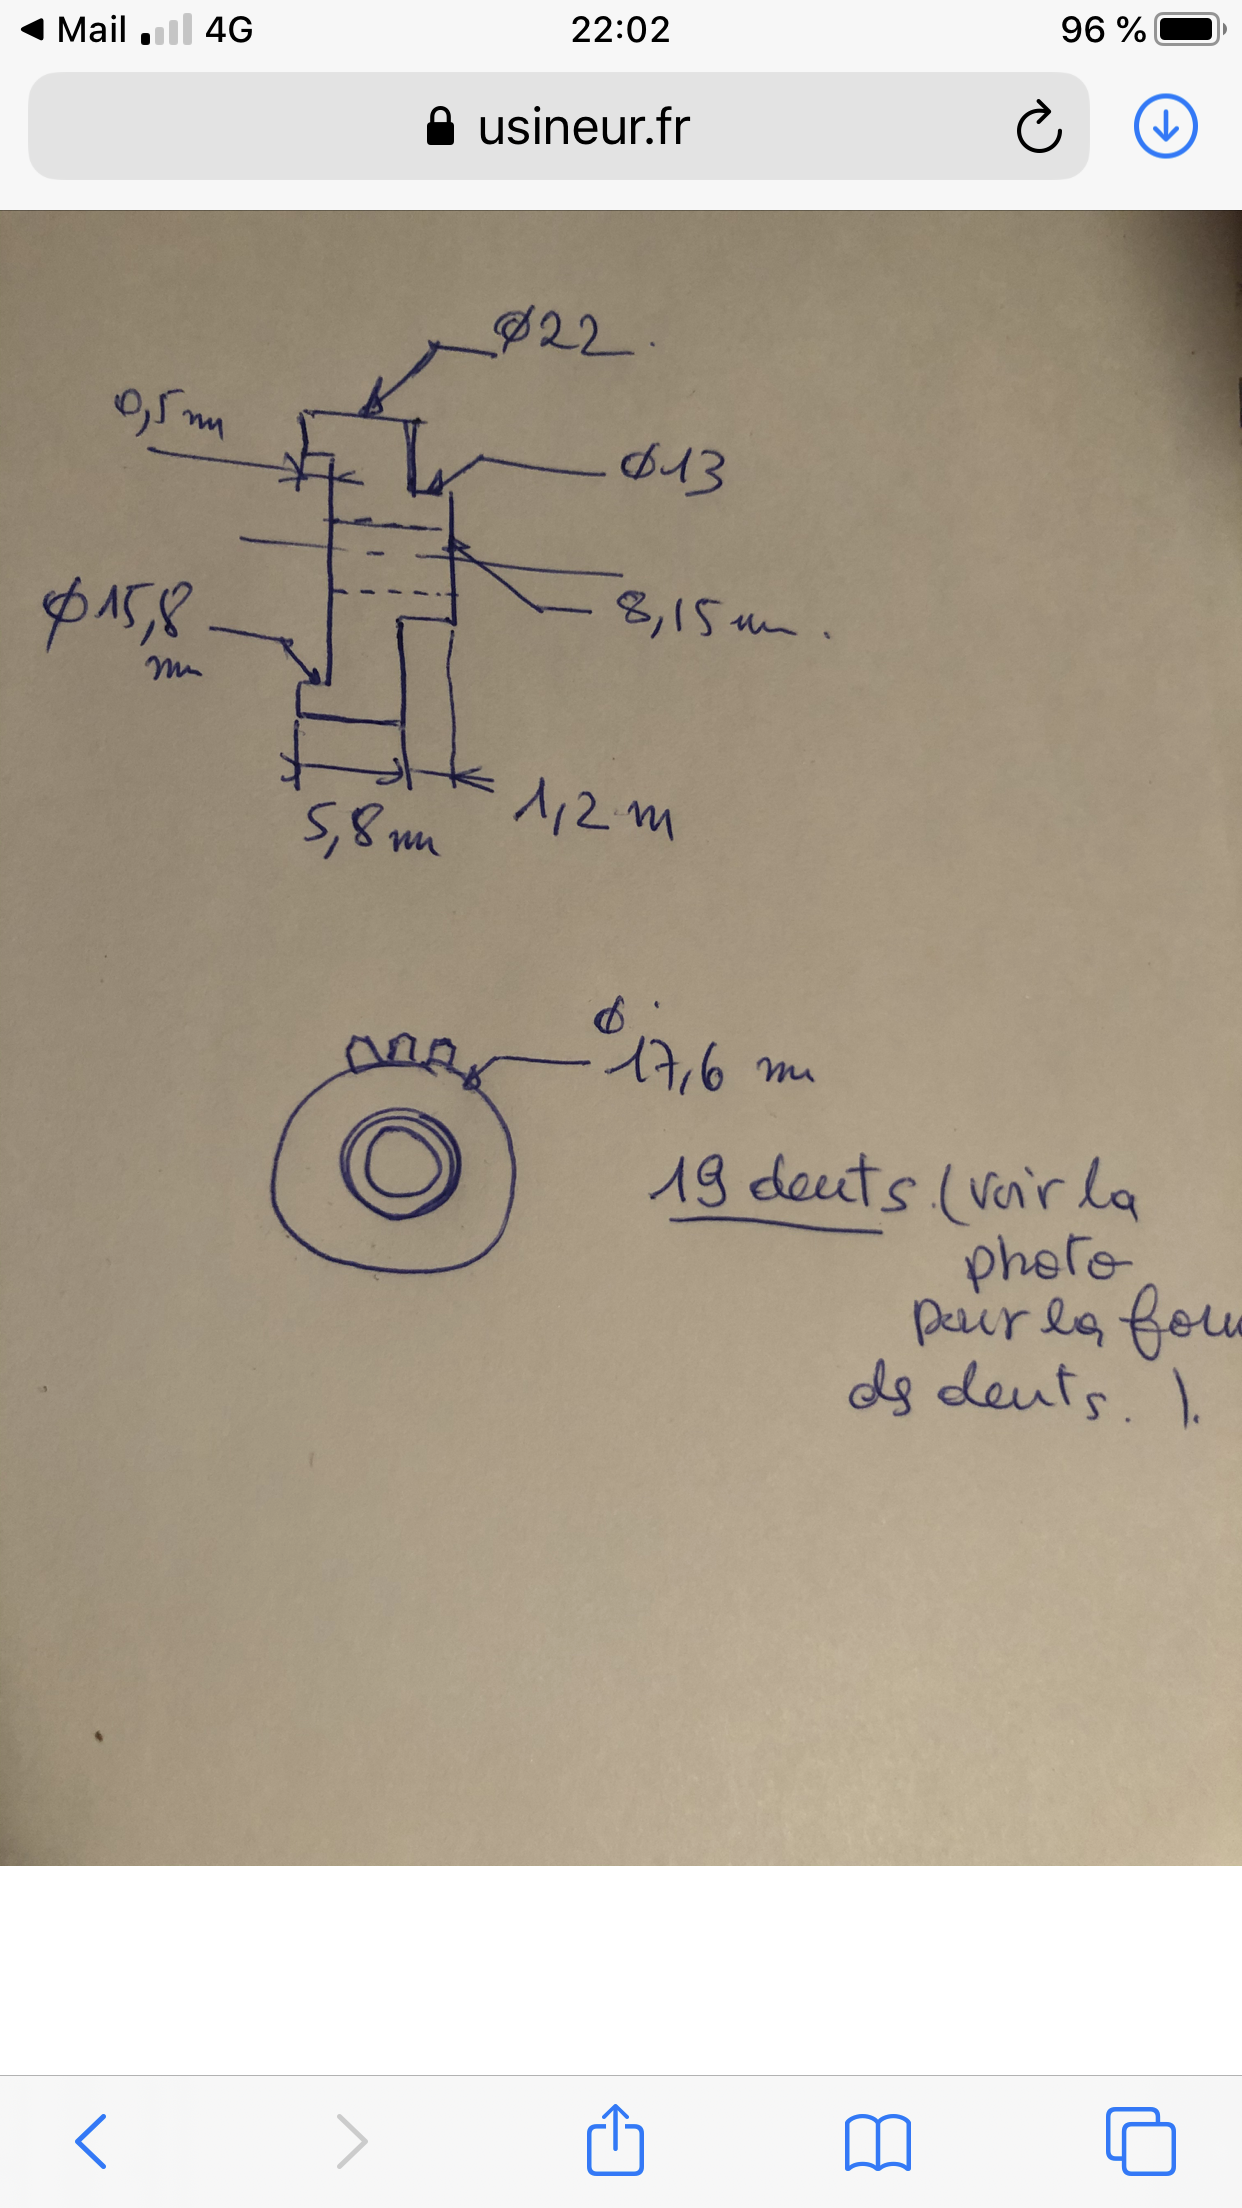 Mail 4G 22:02 96 %
usineur.fr
Ø22.
0,5 mm
Ø13
Ø15,8
mm
8,15 mm.
5,8 mm
1,2 m
Ø
17,6 mm
19 dents. (voir la
photo
pour la
de dents. ).